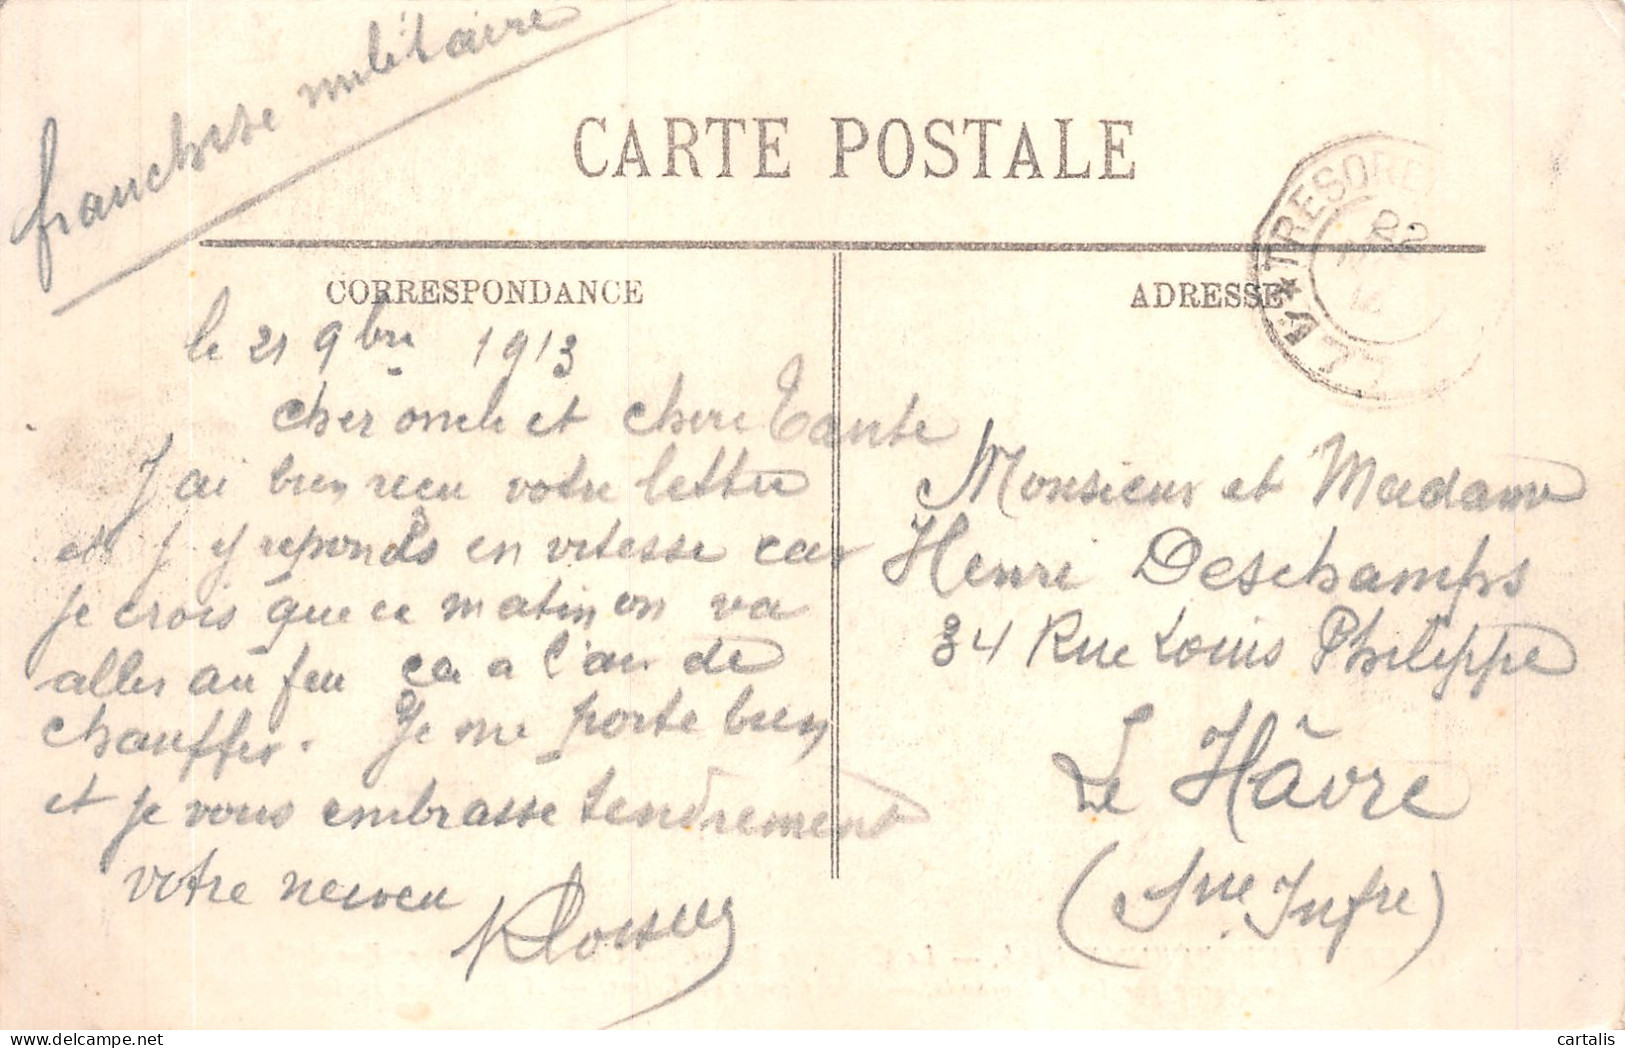 franchise militaire
CARTE POSTALE
CORRESPONDANCE
le 21 9bre 1913
cher oncle et chere Tante
J'ai bien recu votre lettre
et j'y réponds en vitesse car
je crois que ce matin on va
aller au feu ca a l'air de
chauffer. Je me porte bien
et je vous embrasse tendrement
votre neveu
ADRESSE
TRESOR
22
Monsieur et Madame
Henri Deschamps
34 Rue Louis Philippe
Le Hâvre
(Sne Infre)
www.delcampe.net
cartalis